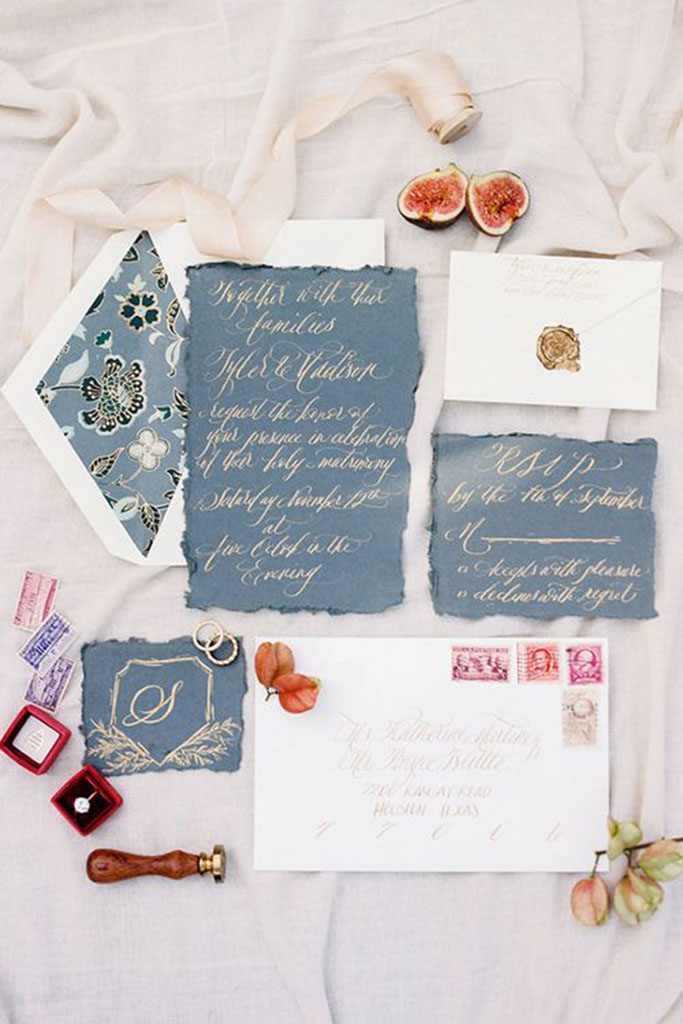 Together with their
families
Tyler & Madison
request the honor of
your presence in celebration
of their holy matrimony
Saturday November 12th
at
five o'clock in the
Evening
RSVP
by the 9th of September
M
accepts with pleasure
declines with regret
S
Ms Katherine
Mr Bryce
Road
Houston Texas